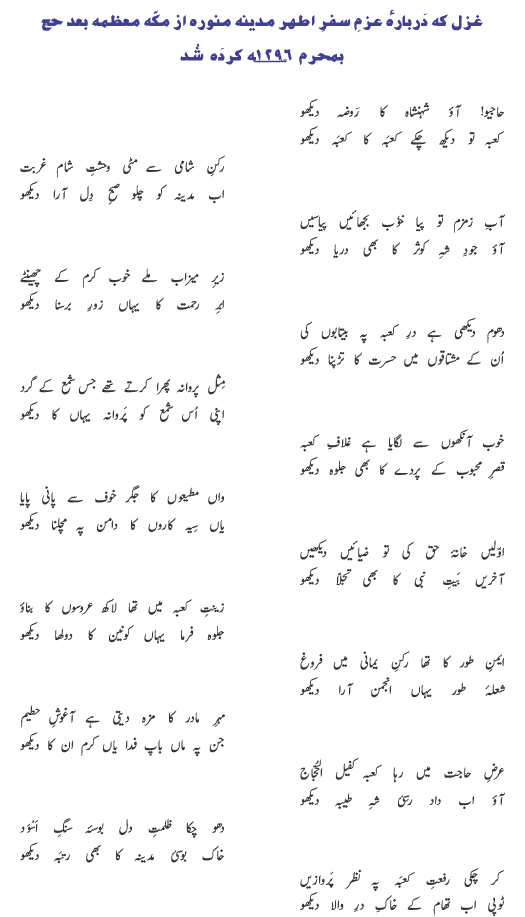 غزل کہ دَربارۂ عزمِ سفرِ اطہر مدینہ منورہ از مکّہ معظمہ بعد حج
بمحرم ۱۲۹۶ھ کردَہ شُد
حاجیو! آؤ شہنشاہ کا رَوضہ دیکھو
کعبہ تو دیکھ چکے کعبَہ کا کعبَہ دیکھو
رکنِ شامی سے مٹی وحشتِ شامِ غربت
اب مدینہ کو چلو صبحِ دِل آرا دیکھو
آبِ زمزم تو پیا خوٗب بجھائیں پیاسیں
آؤ جودِ شہِ کوثر کا بھی دریا دیکھو
زیرِ میزاب ملے خوب کرم کے چھینٹے
ابرِ رحمت کا یہاں زورِ برسنا دیکھو
دھوم دیکھی ہے درِ کعبہ پہ بیتابوں کی
اُن کے مشتاقوں میں حسرت کا تڑپنا دیکھو
مِثل پروانہ پھرا کرتے تھے جس شمع کے گرد
اپنی اُس شمع کو پَروانہ یہاں کا دیکھو
خوب آنکھوں سے لگایا ہے غلافِ کعبہ
قصرِ محبوب کے پردے کا بھی جلوہ دیکھو
واں مطیعوں کا جگر خوف سے پانی پایا
یاں سِیہ کاروں کا دامن پہ مچلنا دیکھو
اوّلیں خانۂ حق کی تو ضیائیں دیکھیں
آخریں بَیتِ نبی کا بھی تجلّا دیکھو
زینتِ کعبہ میں تھا لاکھ عروسوں کا بناؤ
جلوہ فرما یہاں کونین کا دولھا دیکھو
ایمنِ طور کا تھا رکنِ یمانی میں فروغ
شعلۂ طور یہاں انجمن آرا دیکھو
مہرِ مادر کا مزہ دیتی ہے آغوشِ حطیم
جن پہ ماں باپ فدا یاں کرم ان کا دیکھو
عرضِ حاجت میں رہا کعبہ کفیل الحُجّاج
آؤ اب داد رسیٔ شہِ طیبہ دیکھو
دھو چکا ظلمتِ دل بوسۂ سنگِ اَسْوَد
خاک بوسیٔ مدینہ کا بھی رتبَہ دیکھو
کر چکی رفعتِ کعبَہ پہ نظر پَروازیں
ٹوپی اب تھام کے خاکِ درِ والا دیکھو